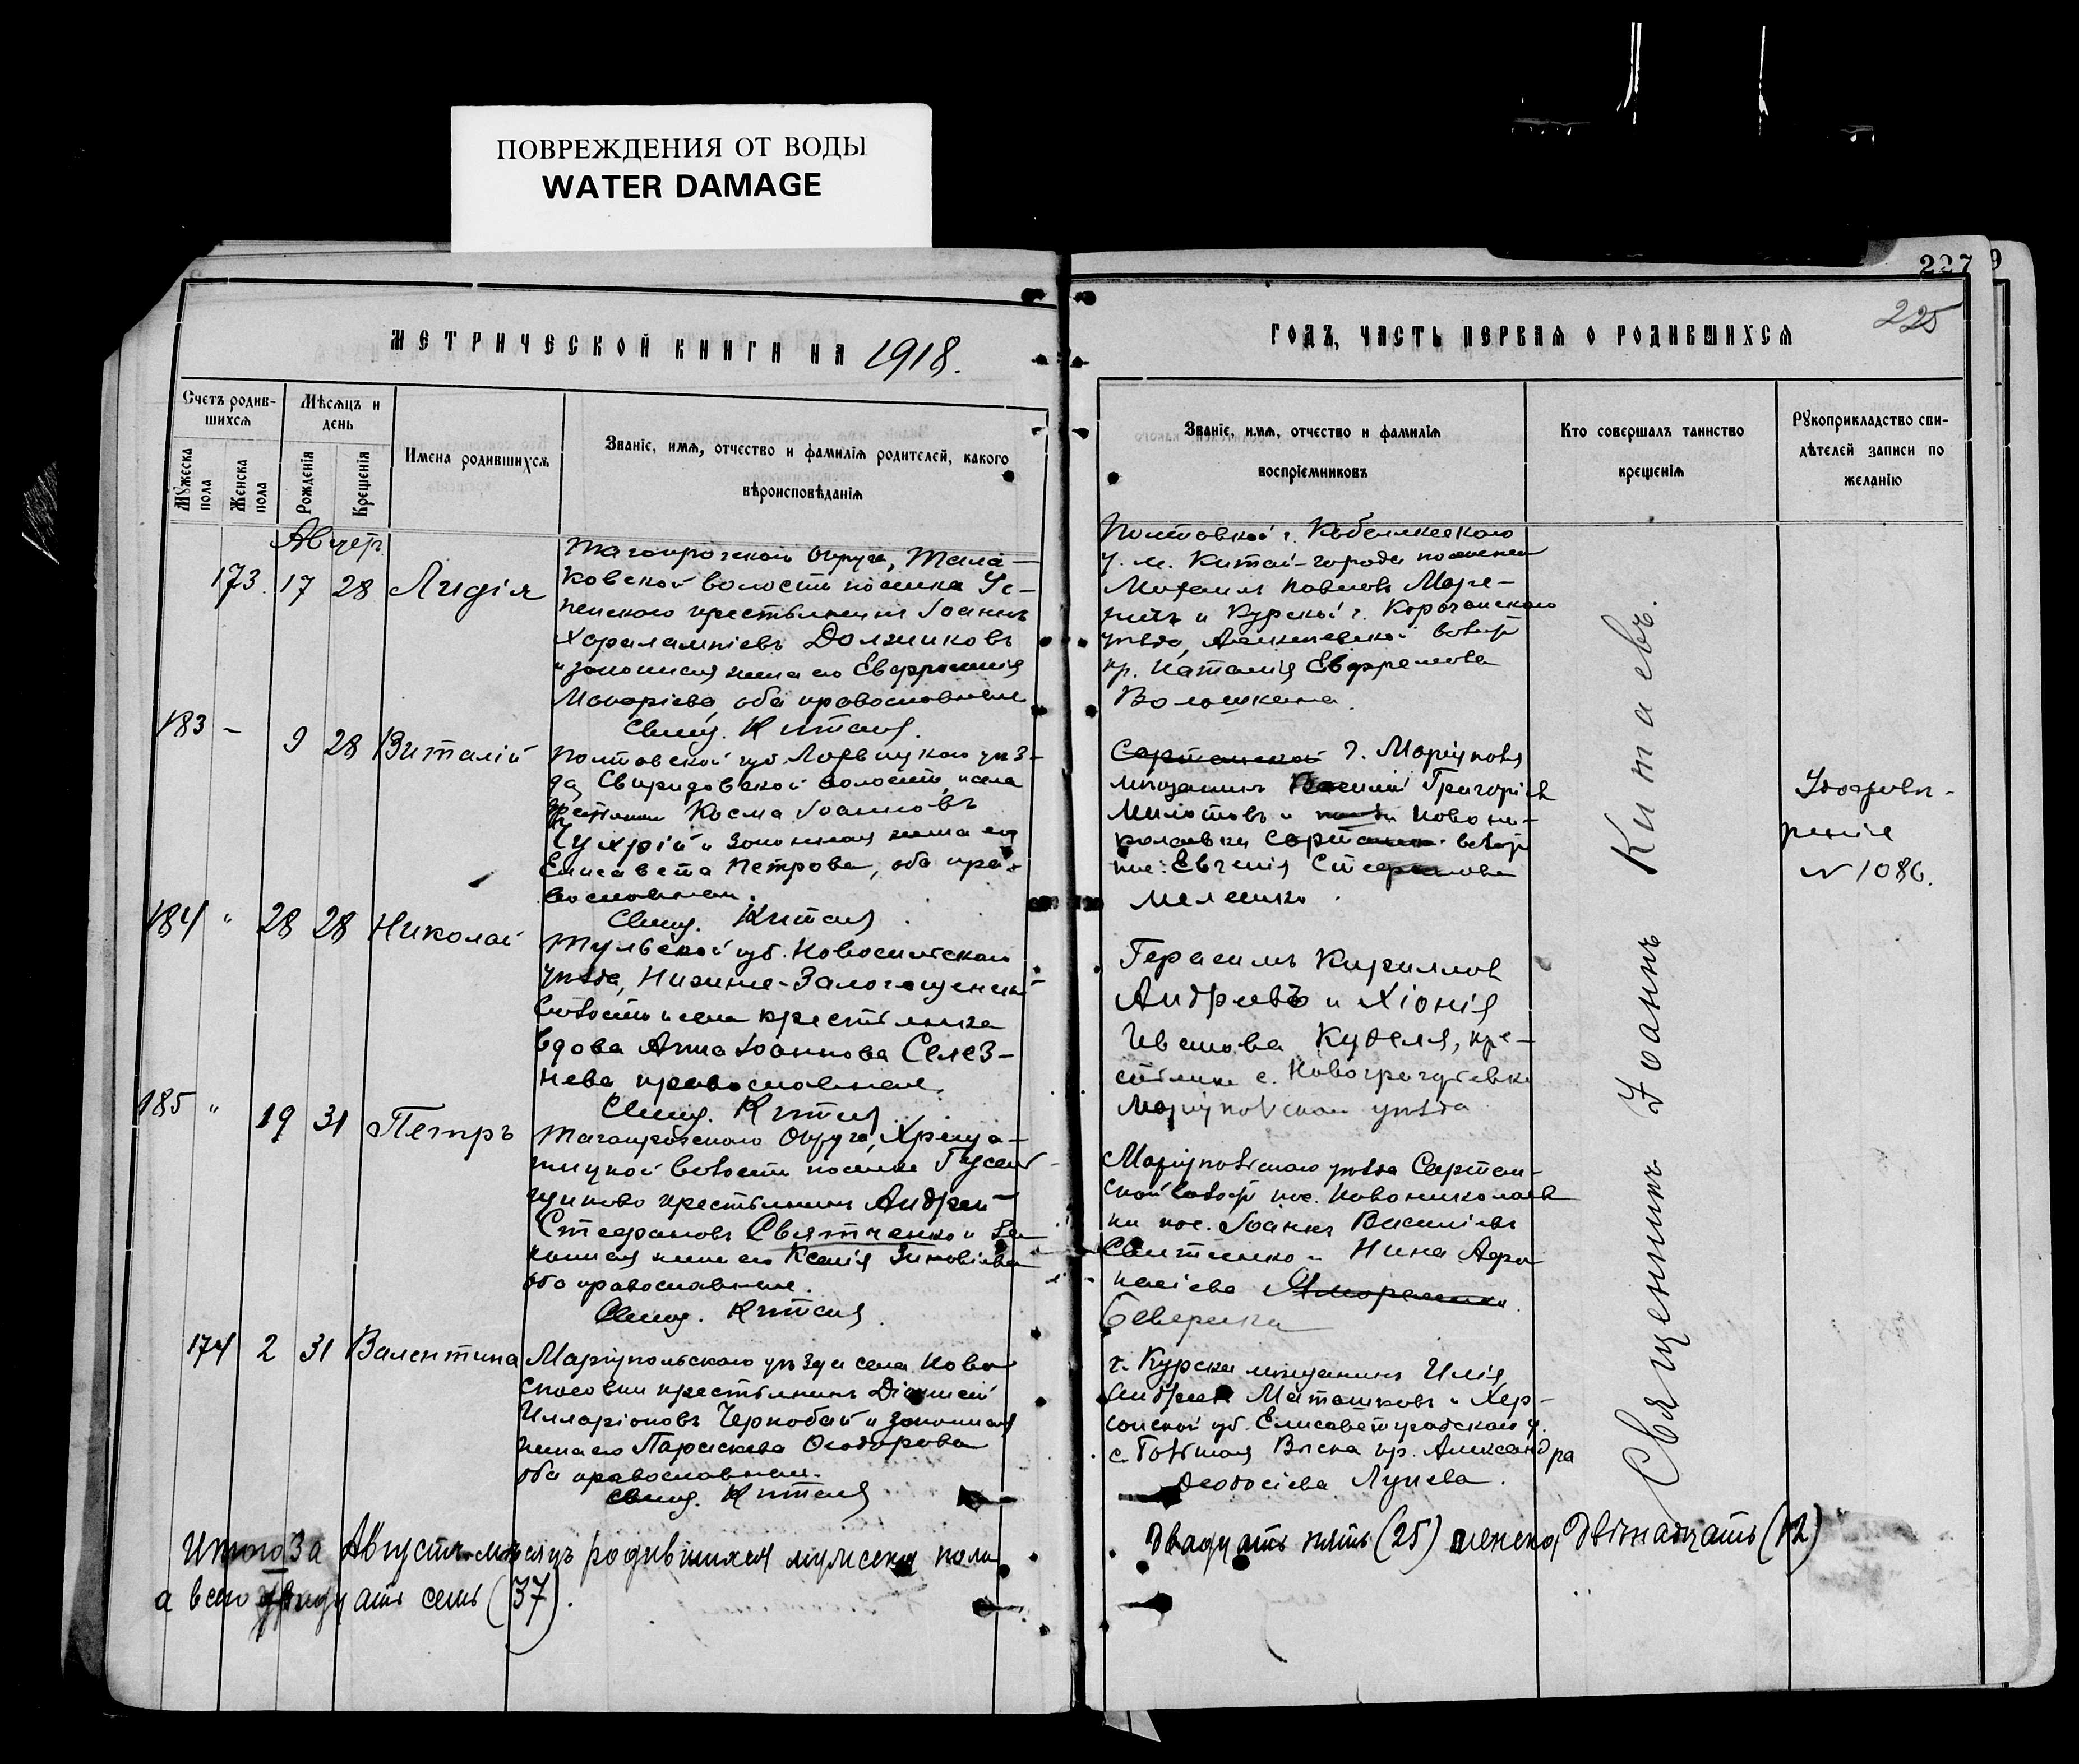 ПОВРЕЖДЕНИЯ ОТ ВОДЫ
WATER DAMAGE
227
9
225
МЕТРИЧЕСКОЙ КНИГИ НА 1918.
ГОДЪ, ЧАСТЬ ПЕРВАЯ О РОДИВШИХСЯ
Счетъ родив-
шихся
Мѣсяцъ и
день
Мужеска пола
Женска пола
Рожденія
Крещенія
Имена родившихся
Званіе, имя, отчество и фамилія родителей, какого
вѣроисповѣданія
Званіе, имя, отчество и фамилія
воспріемниковъ
Кто совершалъ таинство
крещенія
Рукоприкладство сви-
дѣтелей записи по
желанію
173. 17 28 Лидія
Таганрогскаго округа, Тала-
ковской волости поселка Ус-
пенскаго крестьянинъ Іоаннъ
Харалампіевъ Должиковъ
и законная жена его Евфросинія
Макаріева, оба православные
Свящ. Китаев.
Полтавской г. Кобелякскаго
у. м. Китай-города
Михаилъ Павловъ
и Курской г. Корочанскаго
уѣзда, волости
кр. Наталія Евфремова
Волошкина.
183 - 9 28 Виталій
Полтавской губ. Лохвицкаго уѣз-
да, Свиридовской волости и села
крестьянин Косма Іоанновъ
Чухрій и законная жена его
Елисавета Петрова, оба пра-
вославные.
Свящ. Китаев.
Сартанской г. Маріуполя
мѣщанинъ Василій Григоріев
Милостивъ и Новони-
колаевки Сартанск. волости
пос. Евгенія Стефанова
Мелешко.
Удостовѣ-
реніе
№ 1086.
184 " 28 28 Николай
Тульской губ. Новосильскаго
уѣзда, Нижне-Залегощенской
волости и села крестьянка
вдова Анна Іоаннова Селез-
нева православная.
Свящ. Китаев
Герасимъ Кириллов
Андреевъ и Хіонія
Иванова Куделя, кре-
стьяне с. Новогригорьевки
Маріупольскаго уѣзда
185 " 19 31 Петръ
Таганрогскаго Округа, Хреща-
тицкой волости поселка
крестьянинъ Андрей
Стефановъ Святченко и за-
конная жена его Ксенія Зиновіева
оба православные.
Свящ. Китаев.
Маріупольскаго уѣзда Сартан-
ской волости пос. Новониколаев
ки пос. Іоаннъ Василіевъ
Святченко и Нина Афа-
насіева
Северина
174 2 31 Валентина
Маріупольскаго уѣзда села Ново
спасовки крестьянинъ Діонисій
Илларіоновъ Чернобай и законная
жена его Параскева Ѳеодорова
оба православные.
Свящ. Китаев
г. Курска мѣщанинъ Илія
Андреев Маташковъ и Хер-
сонской губ. Елисаветградскаго у.
с. Большая Виска кр. Александра
Ѳеодосіева Лунева.
Священникъ Іоаннъ Китаевъ.
Итого за Августъ мѣсяцъ родившихся мужеска пола
двадцать пять (25) женска двѣнадцать (12)
а всего тридцать семь (37).